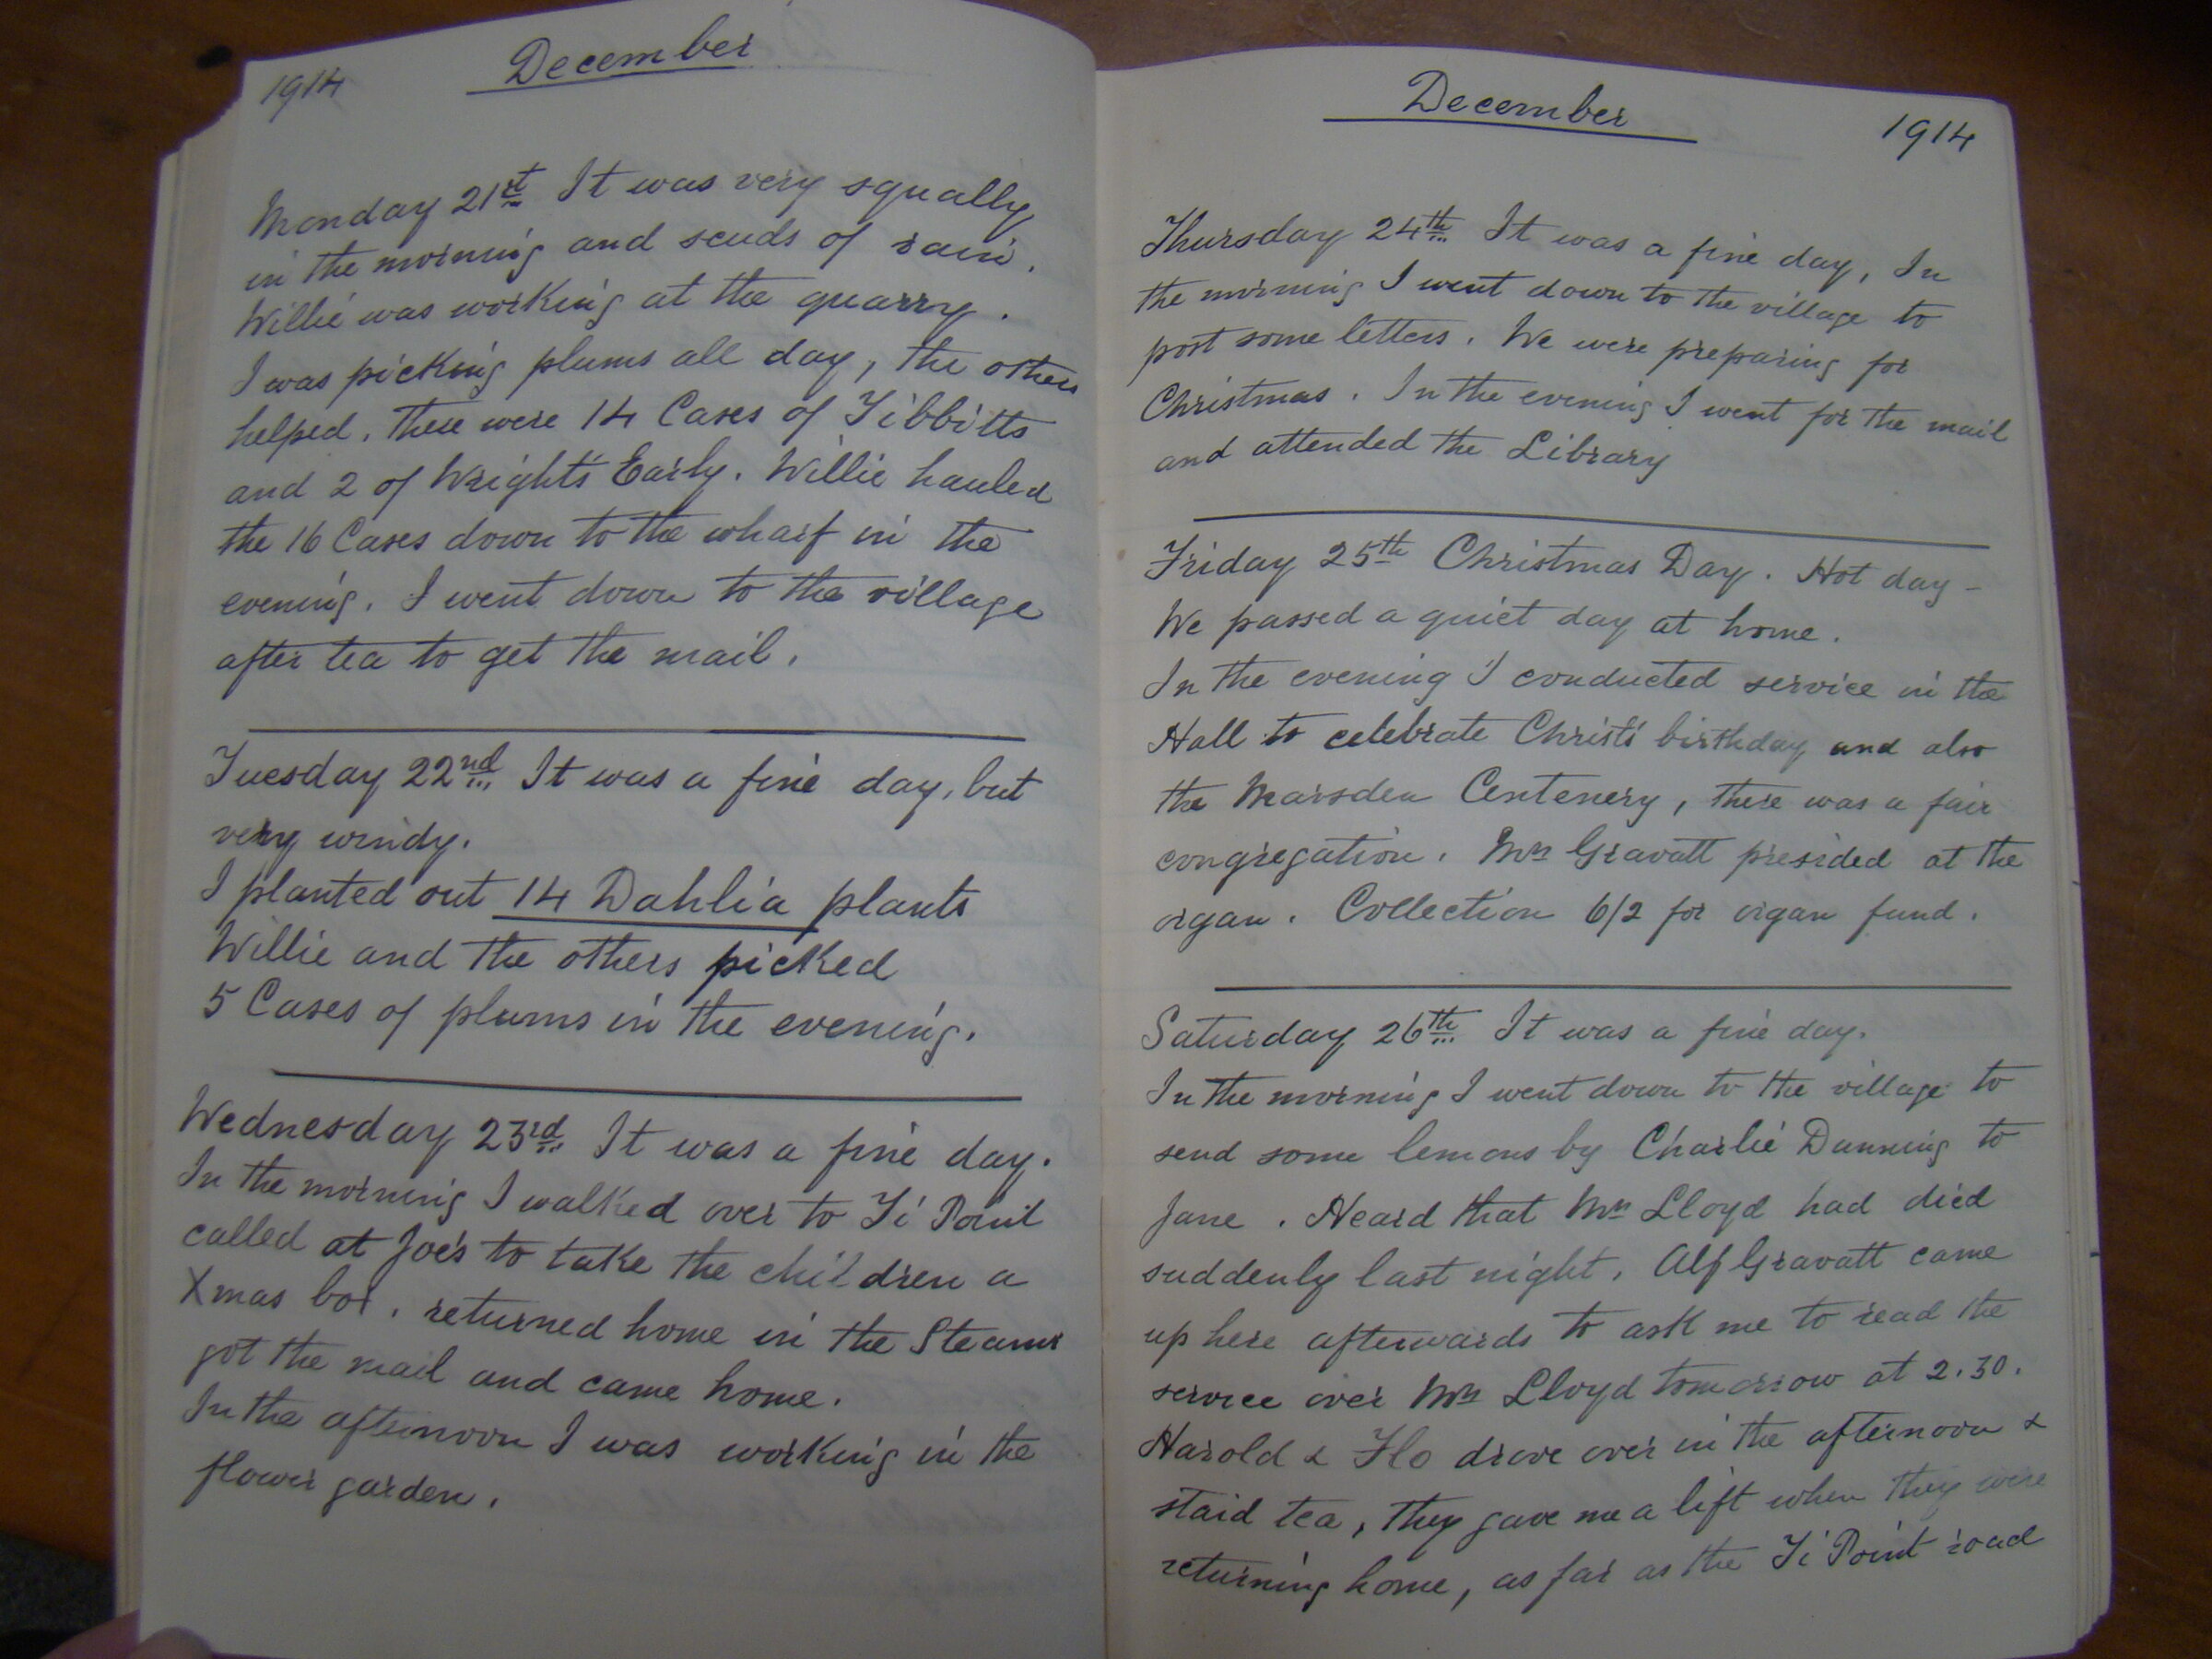 1914
December
Monday 21st It was very squally
in the morning and scuds of rain.
Willie was working at the quarry.
I was picking plums all day, the others
helped. There were 14 Cases of Tibbitts
and 2 of Wright's Early. Willie hauled
the 16 Cases down to the wharf in the
evening. I went down to the village
after tea to get the mail.
Tuesday 22nd It was a fine day, but
very windy.
I planted out 14 Dahlia plants
Willie and the others picked
5 Cases of plums in the evening.
Wednesday 23rd It was a fine day.
In the morning I walked over to Ti Point
called at Joe's to take the children a
Xmas box. returned home in the Steamr
got the mail and came home.
In the afternoon I was working in the
flower garden.
December
1914
Thursday 24th It was a fine day, In
the morning I went down to the village to
post some letters. We were preparing for
Christmas. In the evening I went for the mail
and attended the Library
Friday 25th Christmas Day. Hot day -
We passed a quiet day at home.
In the evening I conducted service in the
Hall to celebrate Christ's birthday and also
the Marsden Centenery, there was a fair
congregation. Mrs Gravatt presided at the
organ. Collection 6/2 for organ fund.
Saturday 26th It was a fine day.
In the morning I went down to the village to
send some lemons by Charlie Dunning to
Jane. Heard that Mrs Lloyd had died
suddenly last night. Alf Gravatt came
up here afterwards to ask me to read the
service over Mrs Lloyd tomorrow at 2.30.
Harold & Flo drove over in the afternoon &
staid tea, they gave me a lift when they were
returning home, as far as the Ti Point road